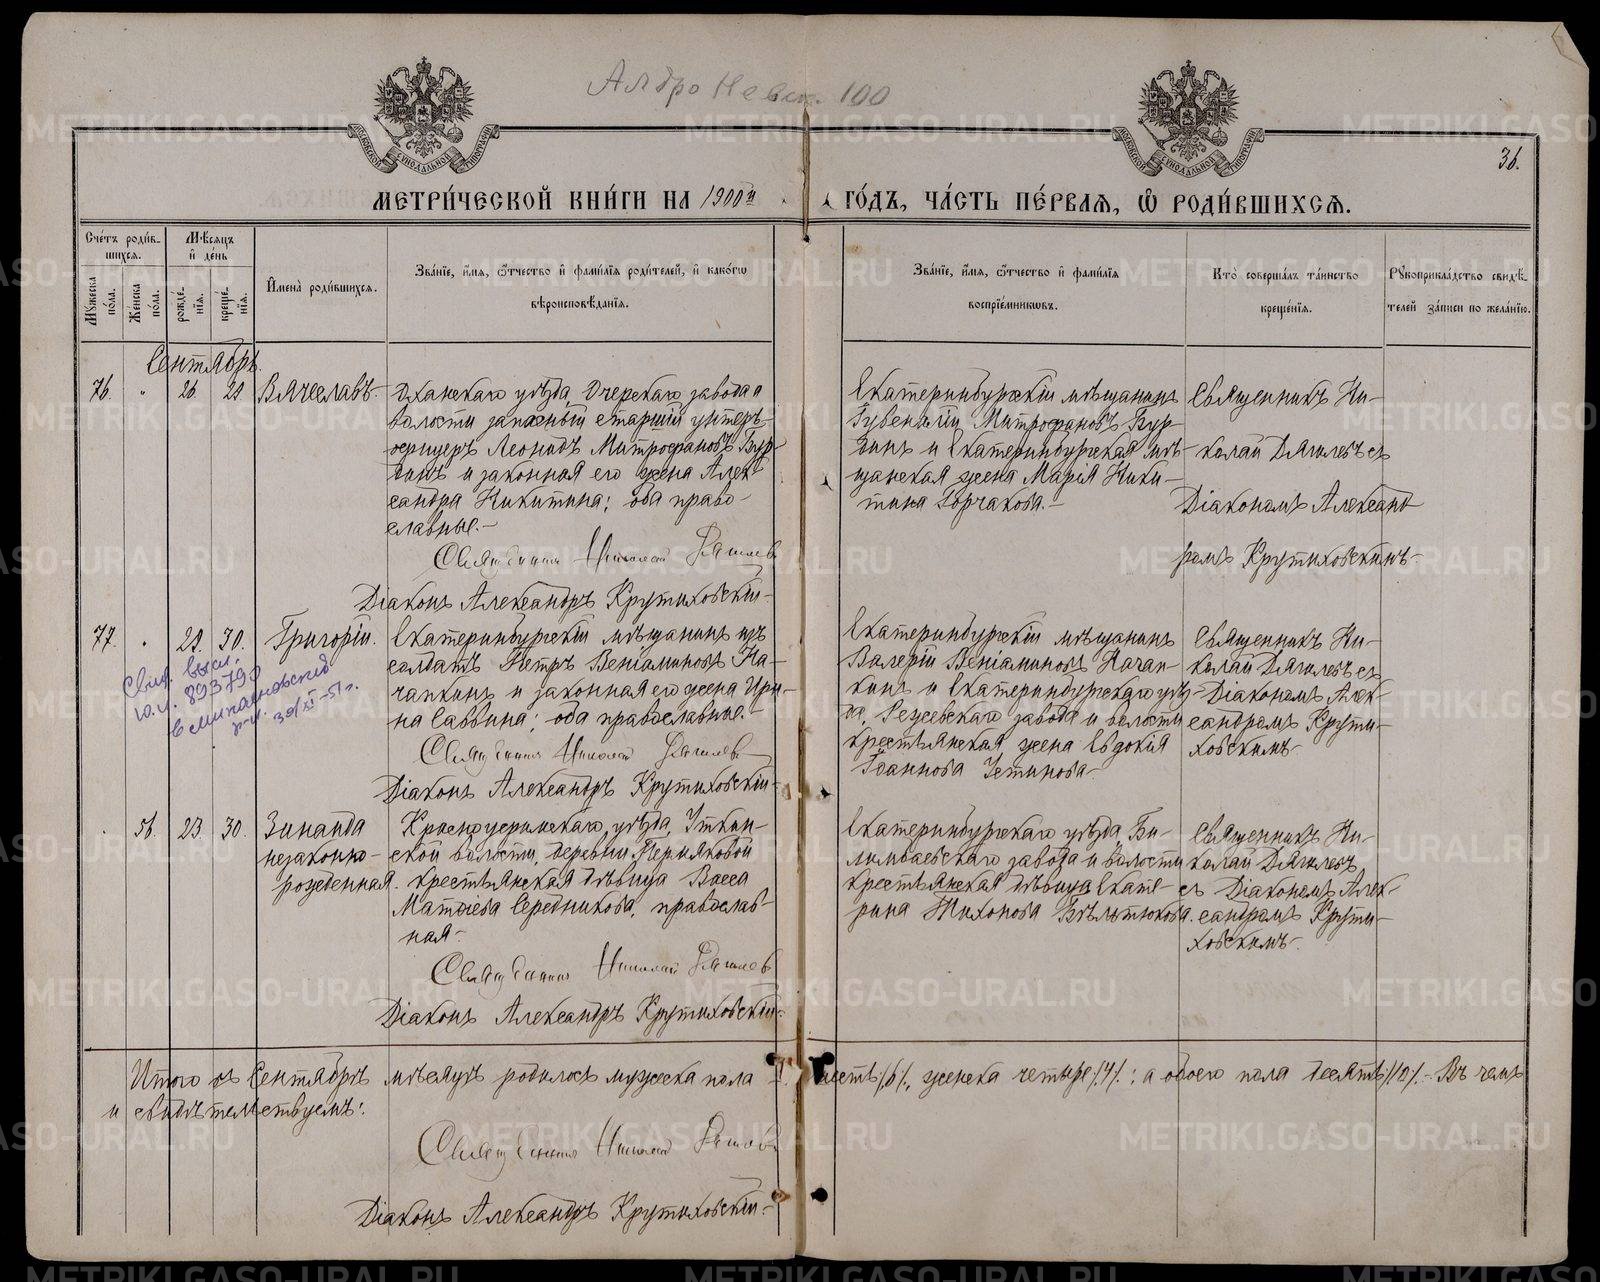 Алдро Невск. 100
МЕТРИ́ЧЕСКОЙ КНИ́ГИ НА 1900й ГО́ДЪ, ЧА́СТЬ ПЕ́РВАЯ, Ѽ РОДИ́ВШИХСЯ.
36.
Сче́тъ роди́вшихся.
Му́жеска по́ла.
Же́нска по́ла.
Мѣ́сяцъ и҆ де́нь
рожде́нїя.
креще́нїя.
И҆мена̀ роди́вшихся.
Зва́нїе, и҆́мя, ѻ҆́тчество и҆ фами́лїя роди́телей, и҆ како́гѡ
вѣроисповѣ́данїя.
Зва́нїе, и҆́мя, ѻ҆́тчество и҆ фами́лїя
воспрїе́мникωвъ.
Кто̀ соверша́лъ та́инство
креще́нїя.
Рꙋкоприкла́дство свидѣ́телей за́писи по жела́нїю.
Сентябрь.
76. " 26. 29. Вячеславъ.
Оханскаго уѣзда, Очерскаго завода и
волости запасный старшій унтеръ-
офицеръ Леонидъ Митрофановъ Бур-
динъ и законная его жена Алек-
сандра Никитина; оба право-
славные.-
Священник Николай Дягилев
Діаконъ Александръ Крутиховскій.-
Екатеринбургскій мѣщанинъ
Гувеналій Митрофановъ Бур-
динъ и Екатеринбургская мѣ-
щанская жена Марія Ники-
тина Горчакова.-
Священникъ Ни-
колай Дягилевъ съ
Діакономъ Александ-
ромъ Крутиховскимъ.-
77. " 29. 30. Григорій.
Екатеринбургскій мѣщанинъ изъ
солдатъ Петръ Веніаминовъ На-
чапкинъ и законная его жена Ири-
на Саввина; оба православные.-
Священник Николай Дягилев
Діаконъ Александръ Крутиховскій.-
Екатеринбургскій мѣщанинъ
Валерій Веніаминовъ Начап-
кинъ и Екатеринбургскаго уѣз-
да, Режевскаго завода и волости
крестьянская жена Евдокія
Іоаннова Устинова.-
Священникъ Ни-
колай Дягилевъ съ
Діакономъ Алек-
сандромъ Крути-
ховскимъ.-
Свид. выс.
ю.и. 893790
30/XI-51г.
56. 23. 30. Зинаида
незаконно-
рожденная.
Красноуфимскаго уѣзда, Уткин-
ской волости, деревни Пермяковой
крестьянская дѣвица Васса
Матѳіева Середникова, православ-
ная.-
Священник Николай Дягилев
Діаконъ Александръ Крутиховскій.-
Екатеринбургскаго уѣзда, Би-
лимбаевскаго завода и волости
крестьянская дѣвица Екате-
рина Тихонова Бѣльтюкова.
Священникъ Ни-
колай Дягилевъ
съ Діакономъ Алек-
сандромъ Крути-
ховскимъ.-
Итого въ Сентябрѣ мѣсяцѣ родилось мужеска пола - шесть /6/, женска четыре /4/; а обоего пола десять /10/.- Въ чемъ
и свидѣтельствуемъ:
Священник Николай Дягилев
Діаконъ Александръ Крутиховскій.-
METRIKI.GASO-URAL.RU